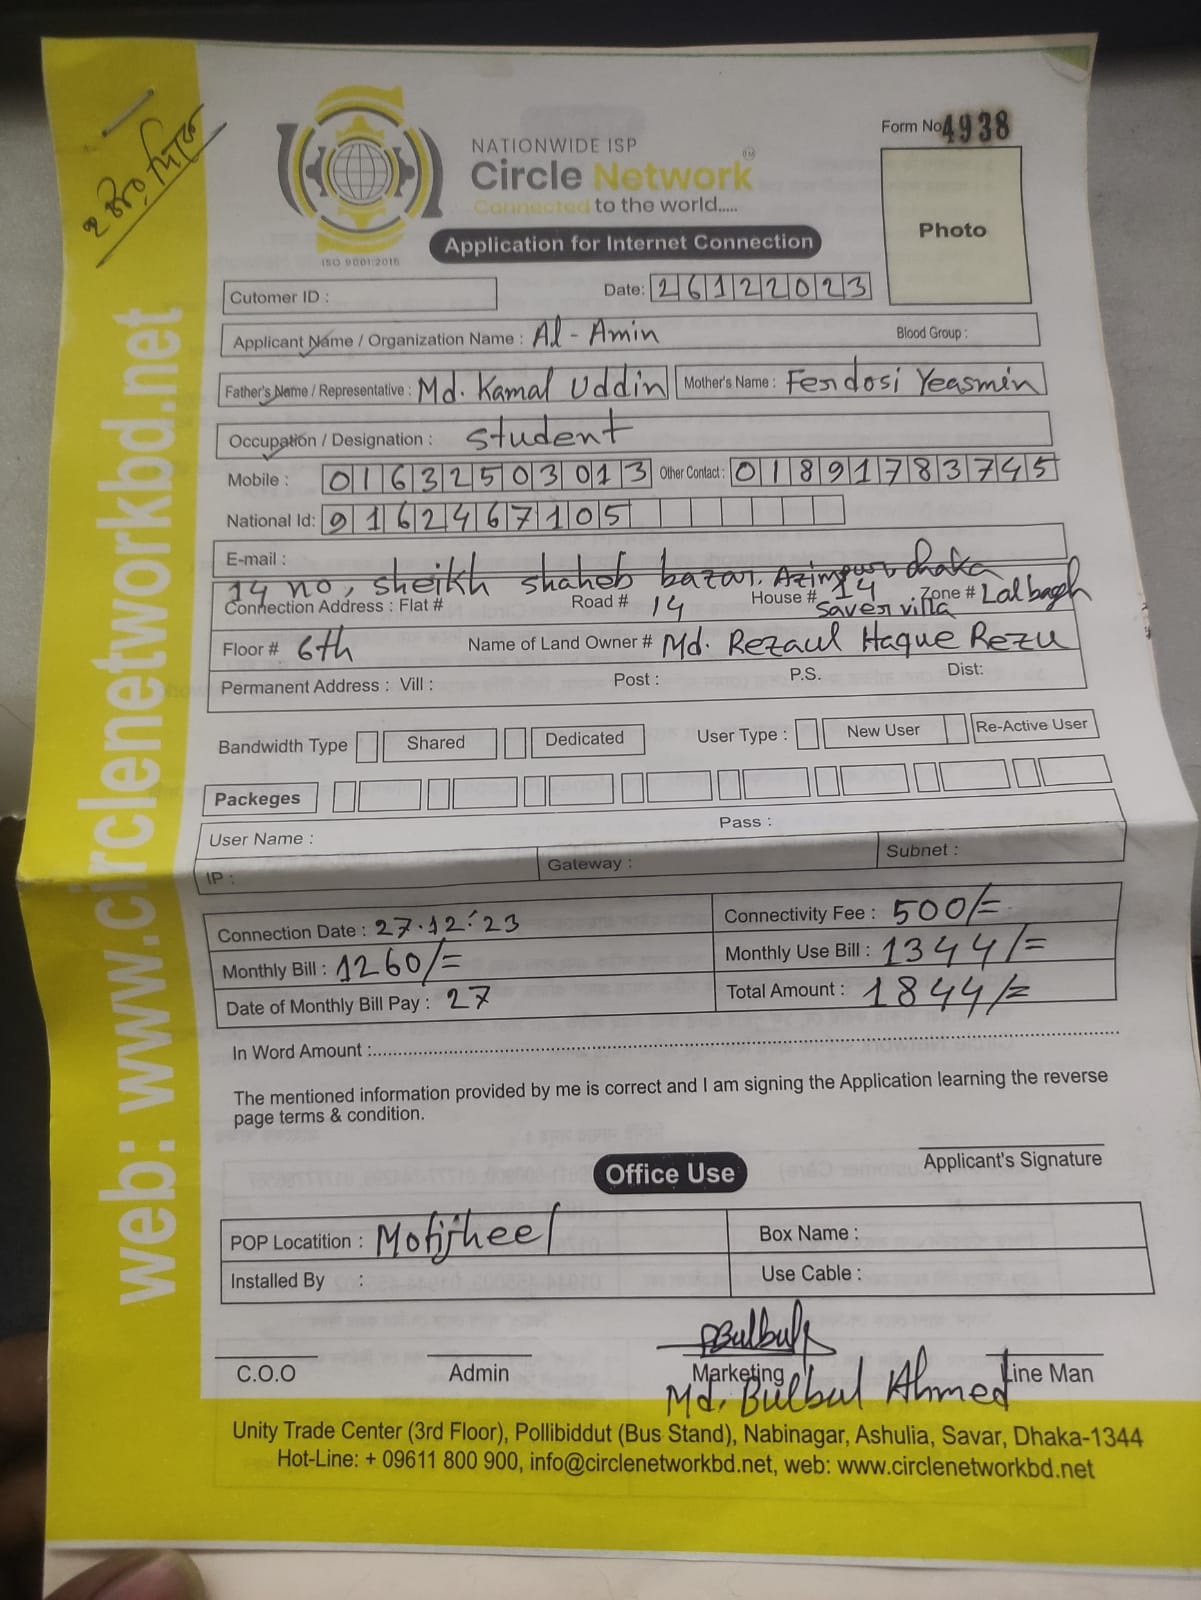 NATIONWIDE ISP
Circle Network
Connected to the world.....
ISO 9001:2015
Application for Internet Connection
Form No 4938
Photo
web: www.circlenetworkbd.net
Cutomer ID :
Date: 26122023
Applicant Name / Organization Name : Al - Amin Blood Group :
Father's Name / Representative : Md. Kamal Uddin Mother's Name : Ferdosi Yeasmin
Occupation / Designation : Student
Mobile : 01632503013 Other Contact : 01891783745
National Id: 9162467105
E-mail :
14 no, sheikh shaheb bazar, Azimpur dhaka
Connection Address : Flat # Road # 14 House # 14 Saver villa Zone # Lalbagh
Floor # 6th Name of Land Owner # Md. Rezaul Haque Rezu
Permanent Address : Vill : Post : P.S. Dist:
Bandwidth Type Shared Dedicated User Type : New User Re-Active User
Packeges
User Name : Pass :
IP : Gateway : Subnet :
Connection Date : 27.12.'23 Connectivity Fee : 500/=
Monthly Bill : 1260/= Monthly Use Bill : 1344/=
Date of Monthly Bill Pay : 27 Total Amount : 1844/=
In Word Amount :
The mentioned information provided by me is correct and I am signing the Application learning the reverse
page terms & condition.
Applicant's Signature
Office Use
POP Locatition : Motijheel Box Name :
Installed By : Use Cable :
Bulbul
C.O.O Admin Marketing Line Man
Md. Bulbul Ahmed
Unity Trade Center (3rd Floor), Pollibiddut (Bus Stand), Nabinagar, Ashulia, Savar, Dhaka-1344
Hot-Line: + 09611 800 900, info@circlenetworkbd.net, web: www.circlenetworkbd.net